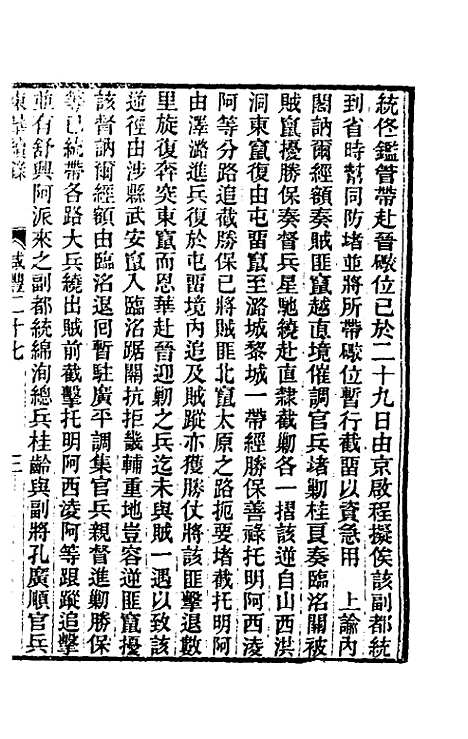 統佟鑑管帶赴晉礮位已於二十九日由京啟程擬俟該副都統
到省時幫同防堵並將所帶礮位暫行截畱以資急用　上諭內
閣訥爾經額奏賊匪竄越直境催調官兵堵勦桂良奏臨洺關被
賊竄擾勝保奏督兵星馳繞赴直隸截勦各一摺該逆自山西洪
洞東竄復由屯畱至潞城黎城一帶經勝保善祿托明阿西淩
阿等分路追截勝保已將賊匪北竄太原之路扼要堵截托明阿
由澤潞進兵復於屯畱境內追及賊蹤亦獲勝仗將該匪擊退數
里旋復奔突東竄而恩華赴晉迎勦之兵迄未與賊一遇以致該
逆徑由涉縣武安竄入臨洺踞關抗拒畿輔重地豈容逆匪竄擾
該督訥爾經額由臨洺退囘暫駐廣平調集官兵親督進勦勝保
等已統帶各路大兵繞出賊前截擊托明阿西淩阿等跟蹤追擊
並有舒興阿派來之副都統綿洵總兵桂齡與副將孔廣順官兵
東華續錄　咸豐二十七　三